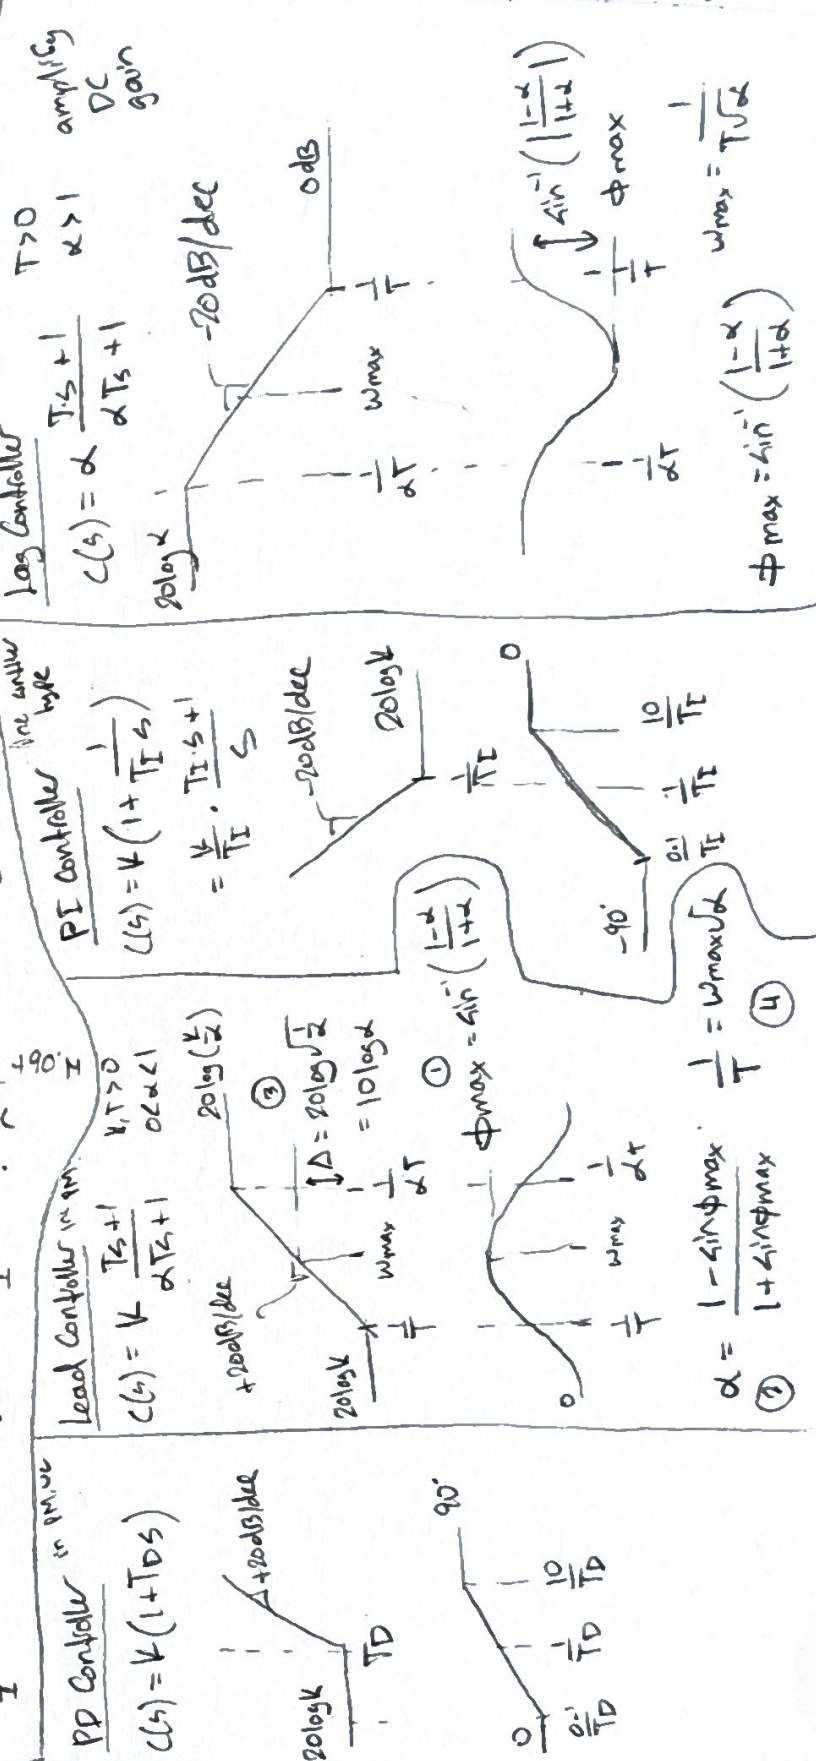 PD Controller in PM, ωc
C(s) = K(1+T_D s)
+20dB/dec
20logK
T_D
90°
0
0.1/T_D
1/T_D
10/T_D
+90°
I
Lead Controller in PM
C(s) = K (Ts+1)/(αTs+1)
K,T>0
0<α<1
+20dB/dec
20log(K/α)
20logK
③
Δ = 20log√(1/α)
= 10logα
1/T
ωmax
1/αT
① ϕmax = sin⁻¹((1-α)/(1+α))
0
1/T
ωmax
1/αT
② α = (1-sinϕmax)/(1+sinϕmax)
1/T = ωmax√α
④
PI Controller
type
C(s) = K(1+1/(T_I s))
= K/T_I · (T_I·s+1)/s
-20dB/dec
20logK
1/T_I
0
-90°
0.1/T_I
1/T_I
10/T_I
Lag Controller
C(s) = α (T·s+1)/(αTs+1)
T>0
α>1
amplify
DC
gain
20logα
-20dB/dec
0dB
1/αT
ωmax
1/T
sin⁻¹(|(1-α)/(1+α)|)
ϕmax
1/αT
1/T
ϕmax = sin⁻¹((1-α)/(1+α))
ωmax = 1/(T√α)